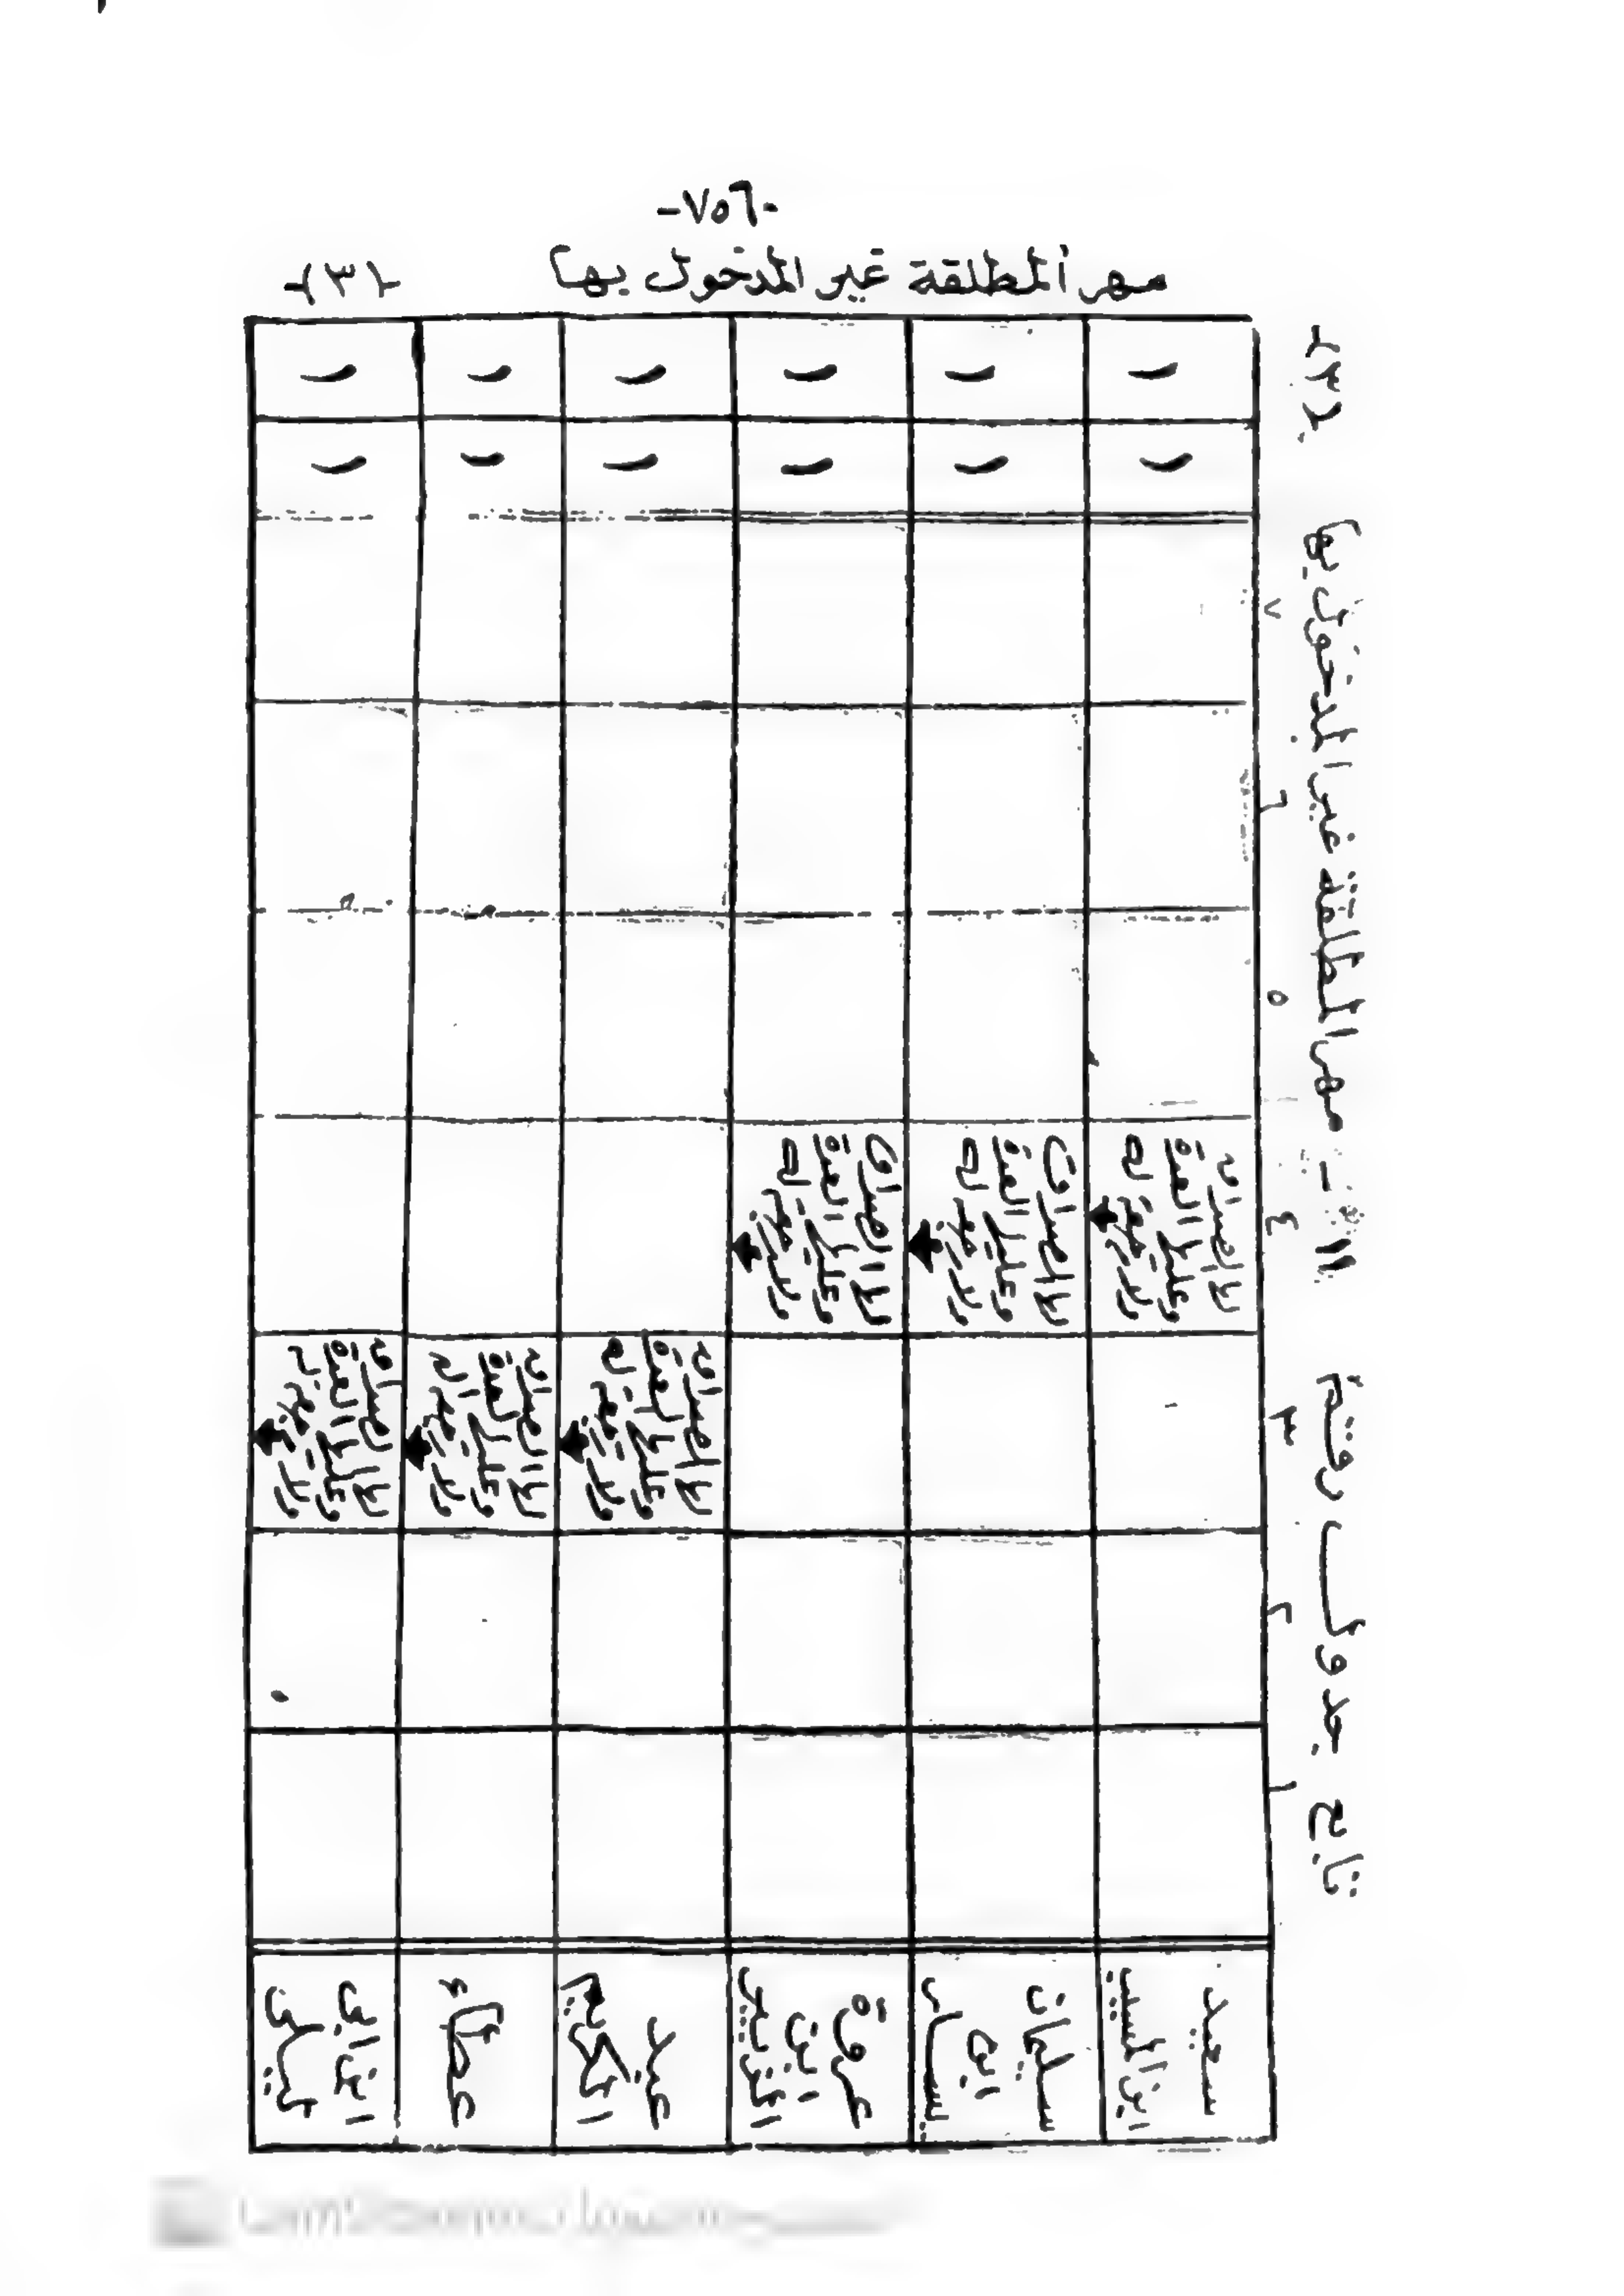 -٧٥٦-
مهر المطلقة غير المدخول بها -(٣)-
تابع جدول رقم ١١ - مهر المطلقة غير المدخول بها (٣)
١ ٢ ٣ ٤ ٥ ٦ ٧
سعيد
ابن المسيب
لها الصداق
وعليها العدة
ولا رجعة له
سليمان
ابن
يسار
لها الصداق
وعليها العدة
ولا رجعة له
عروة
ابن
الزبير
لها الصداق
وعليها العدة
ولا رجعة له
عبد
الكريم
لها الصداق
وعليها العدة
ولا رجعة له
عطاء
لها الصداق
وعليها العدة
ولا رجعة له
ابن ابى
ليلى
لها الصداق
وعليها العدة
ولا رجعة له